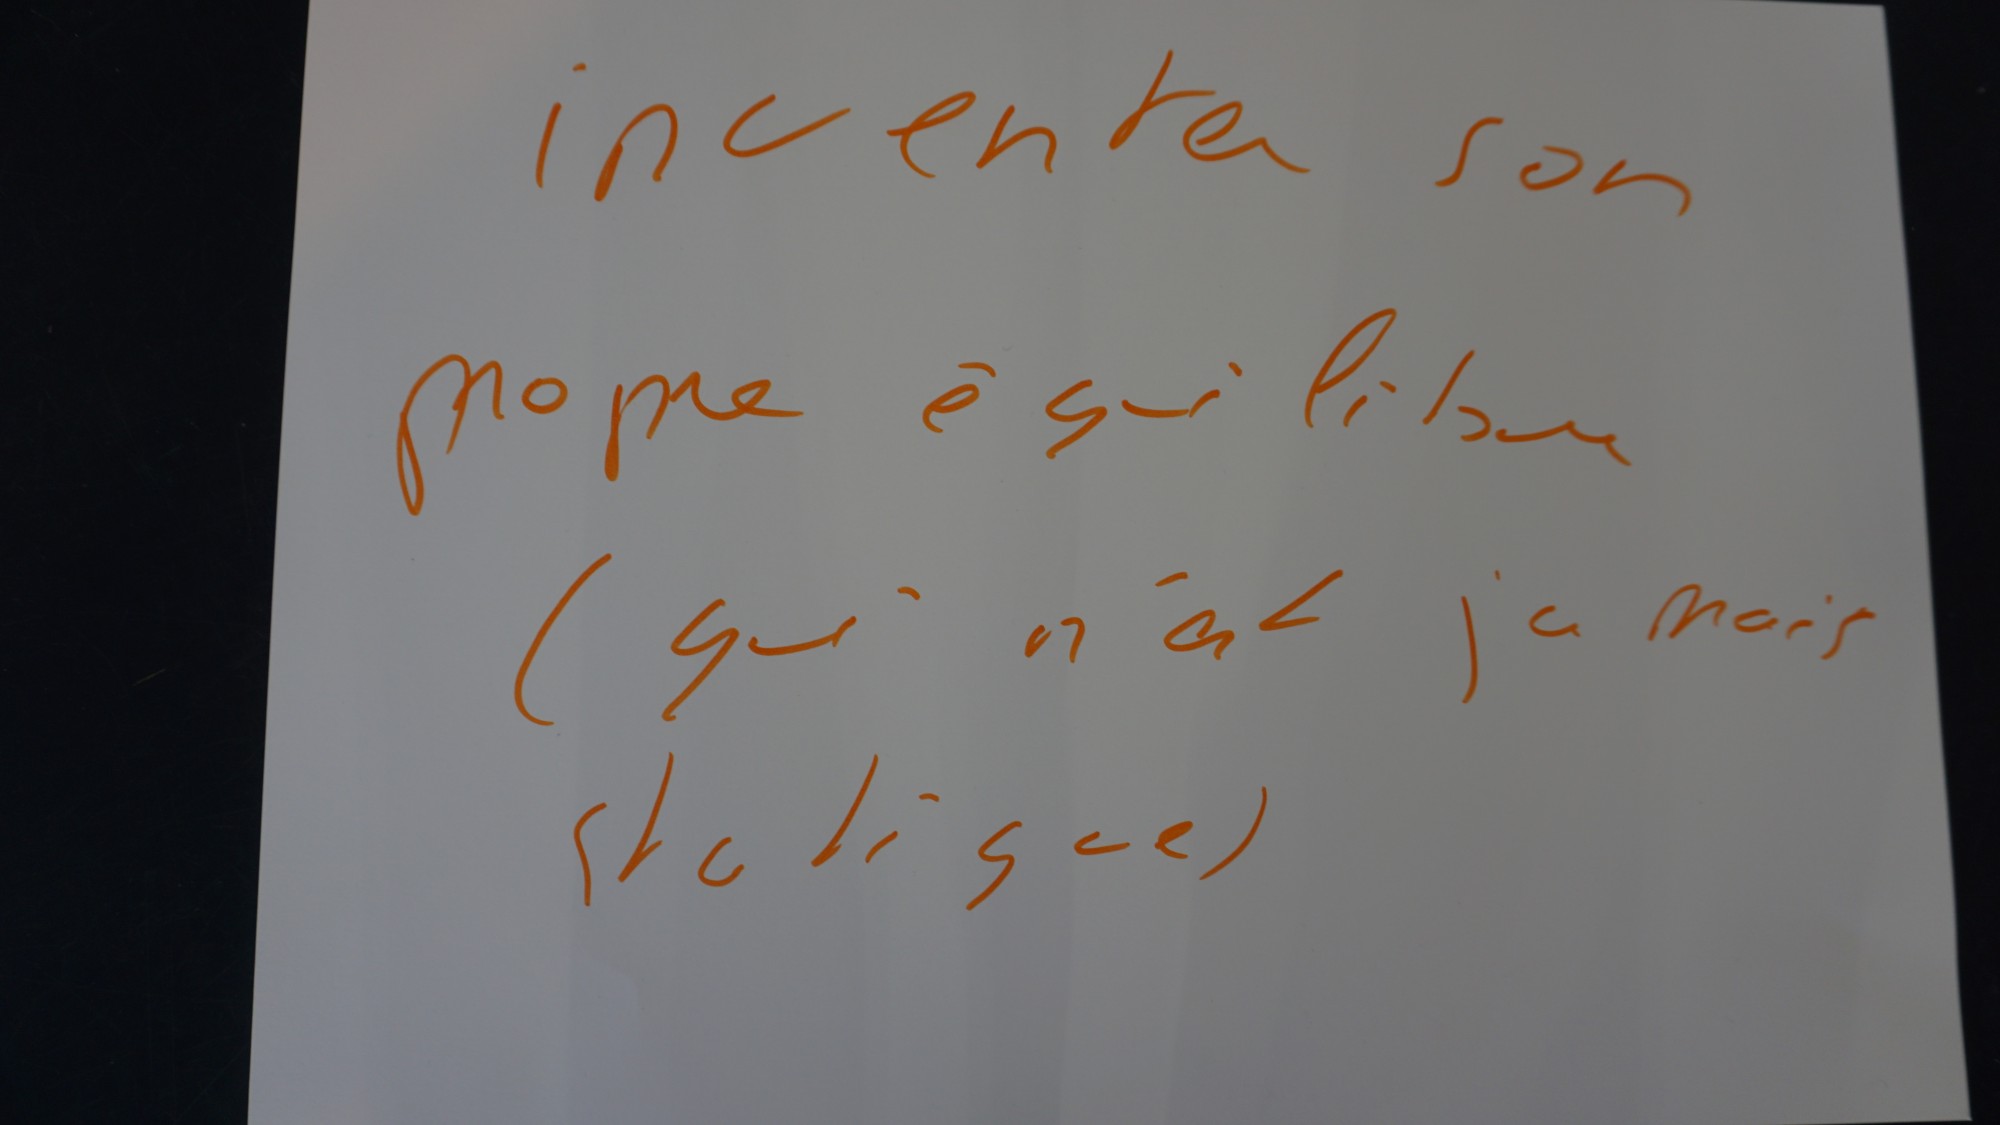 inventer son
propre équilibre
(qui n'est jamais
statique)